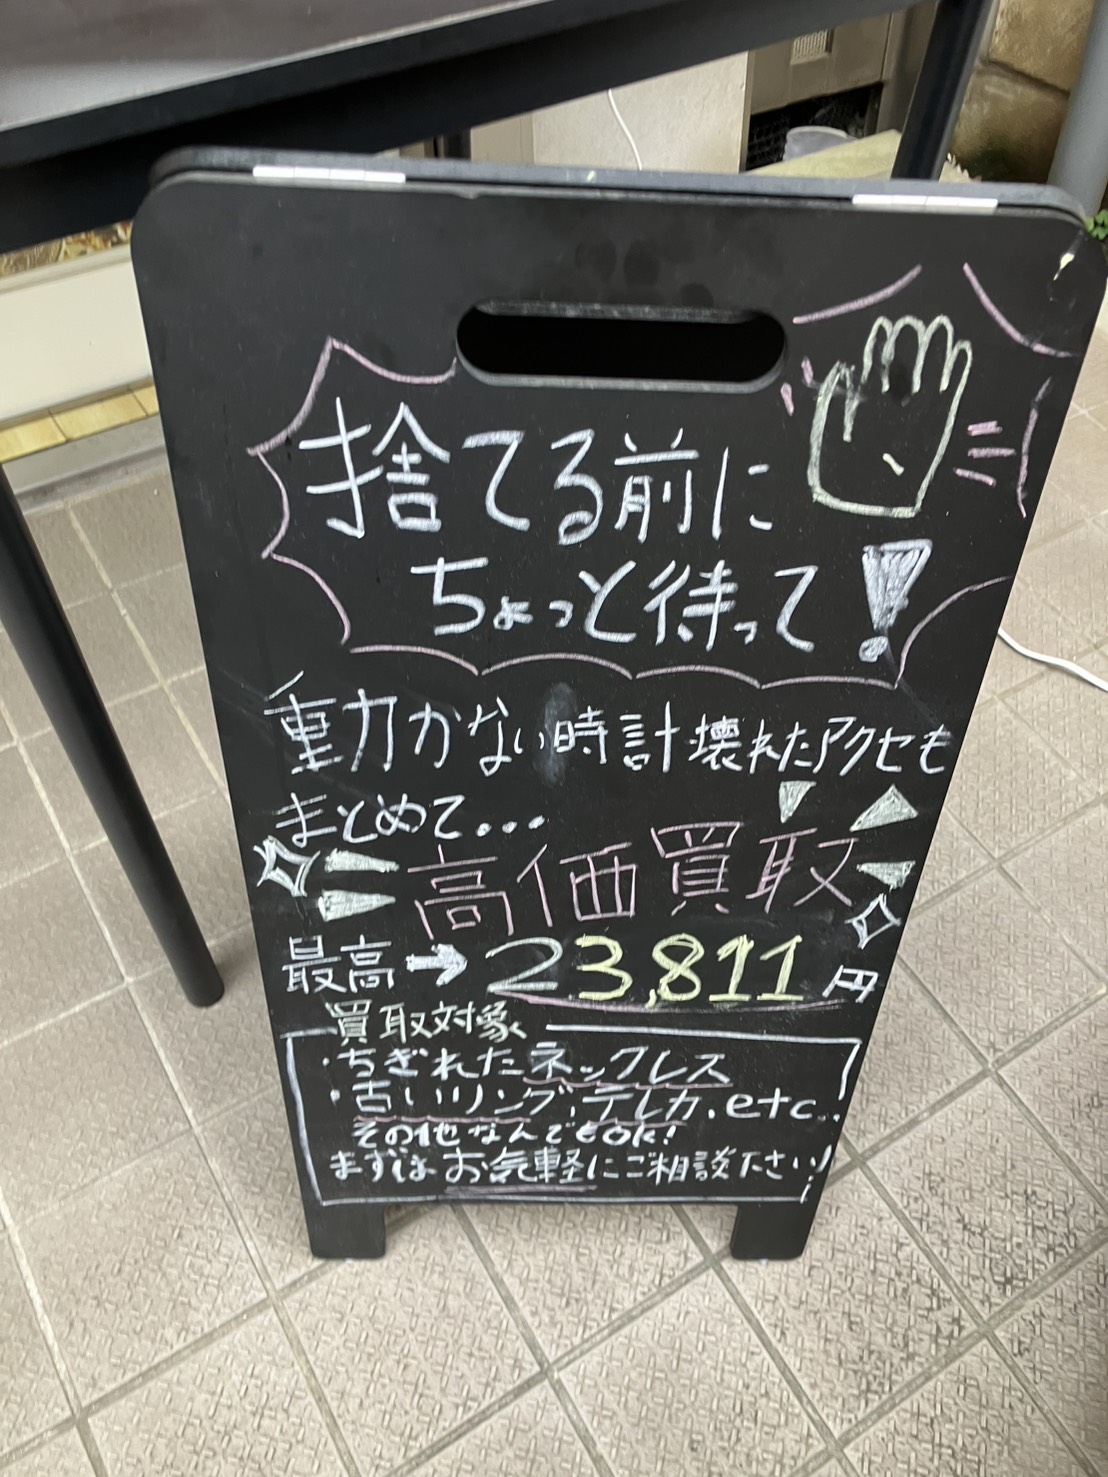 捨てる前に
ちょっと待って!
動かない時計壊れたアクセも
まとめて...
高価買取
最高→23,811円
買取対象
・ちぎれたネックレス
・古いリング、テレカ.etc..
その他なんでもOK!
まずはお気軽にご相談下さい!